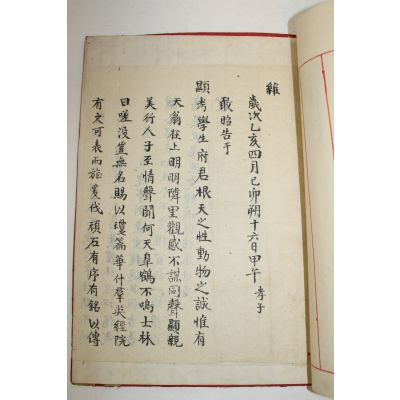 維
歲次乙亥四月己卯朔十六日甲午 孝子
敢昭告于
顯考學生府君根天之性動物之誠惟有
天翁在上明明隣里觀感不謀同聲顯親
美行人子至情聲聞何天阜鶴不鳴士林
曰嗟没豈無名賜以瓊篇華什羣矣經院
有文可表而旌爰伐頑石有序有銘以傳